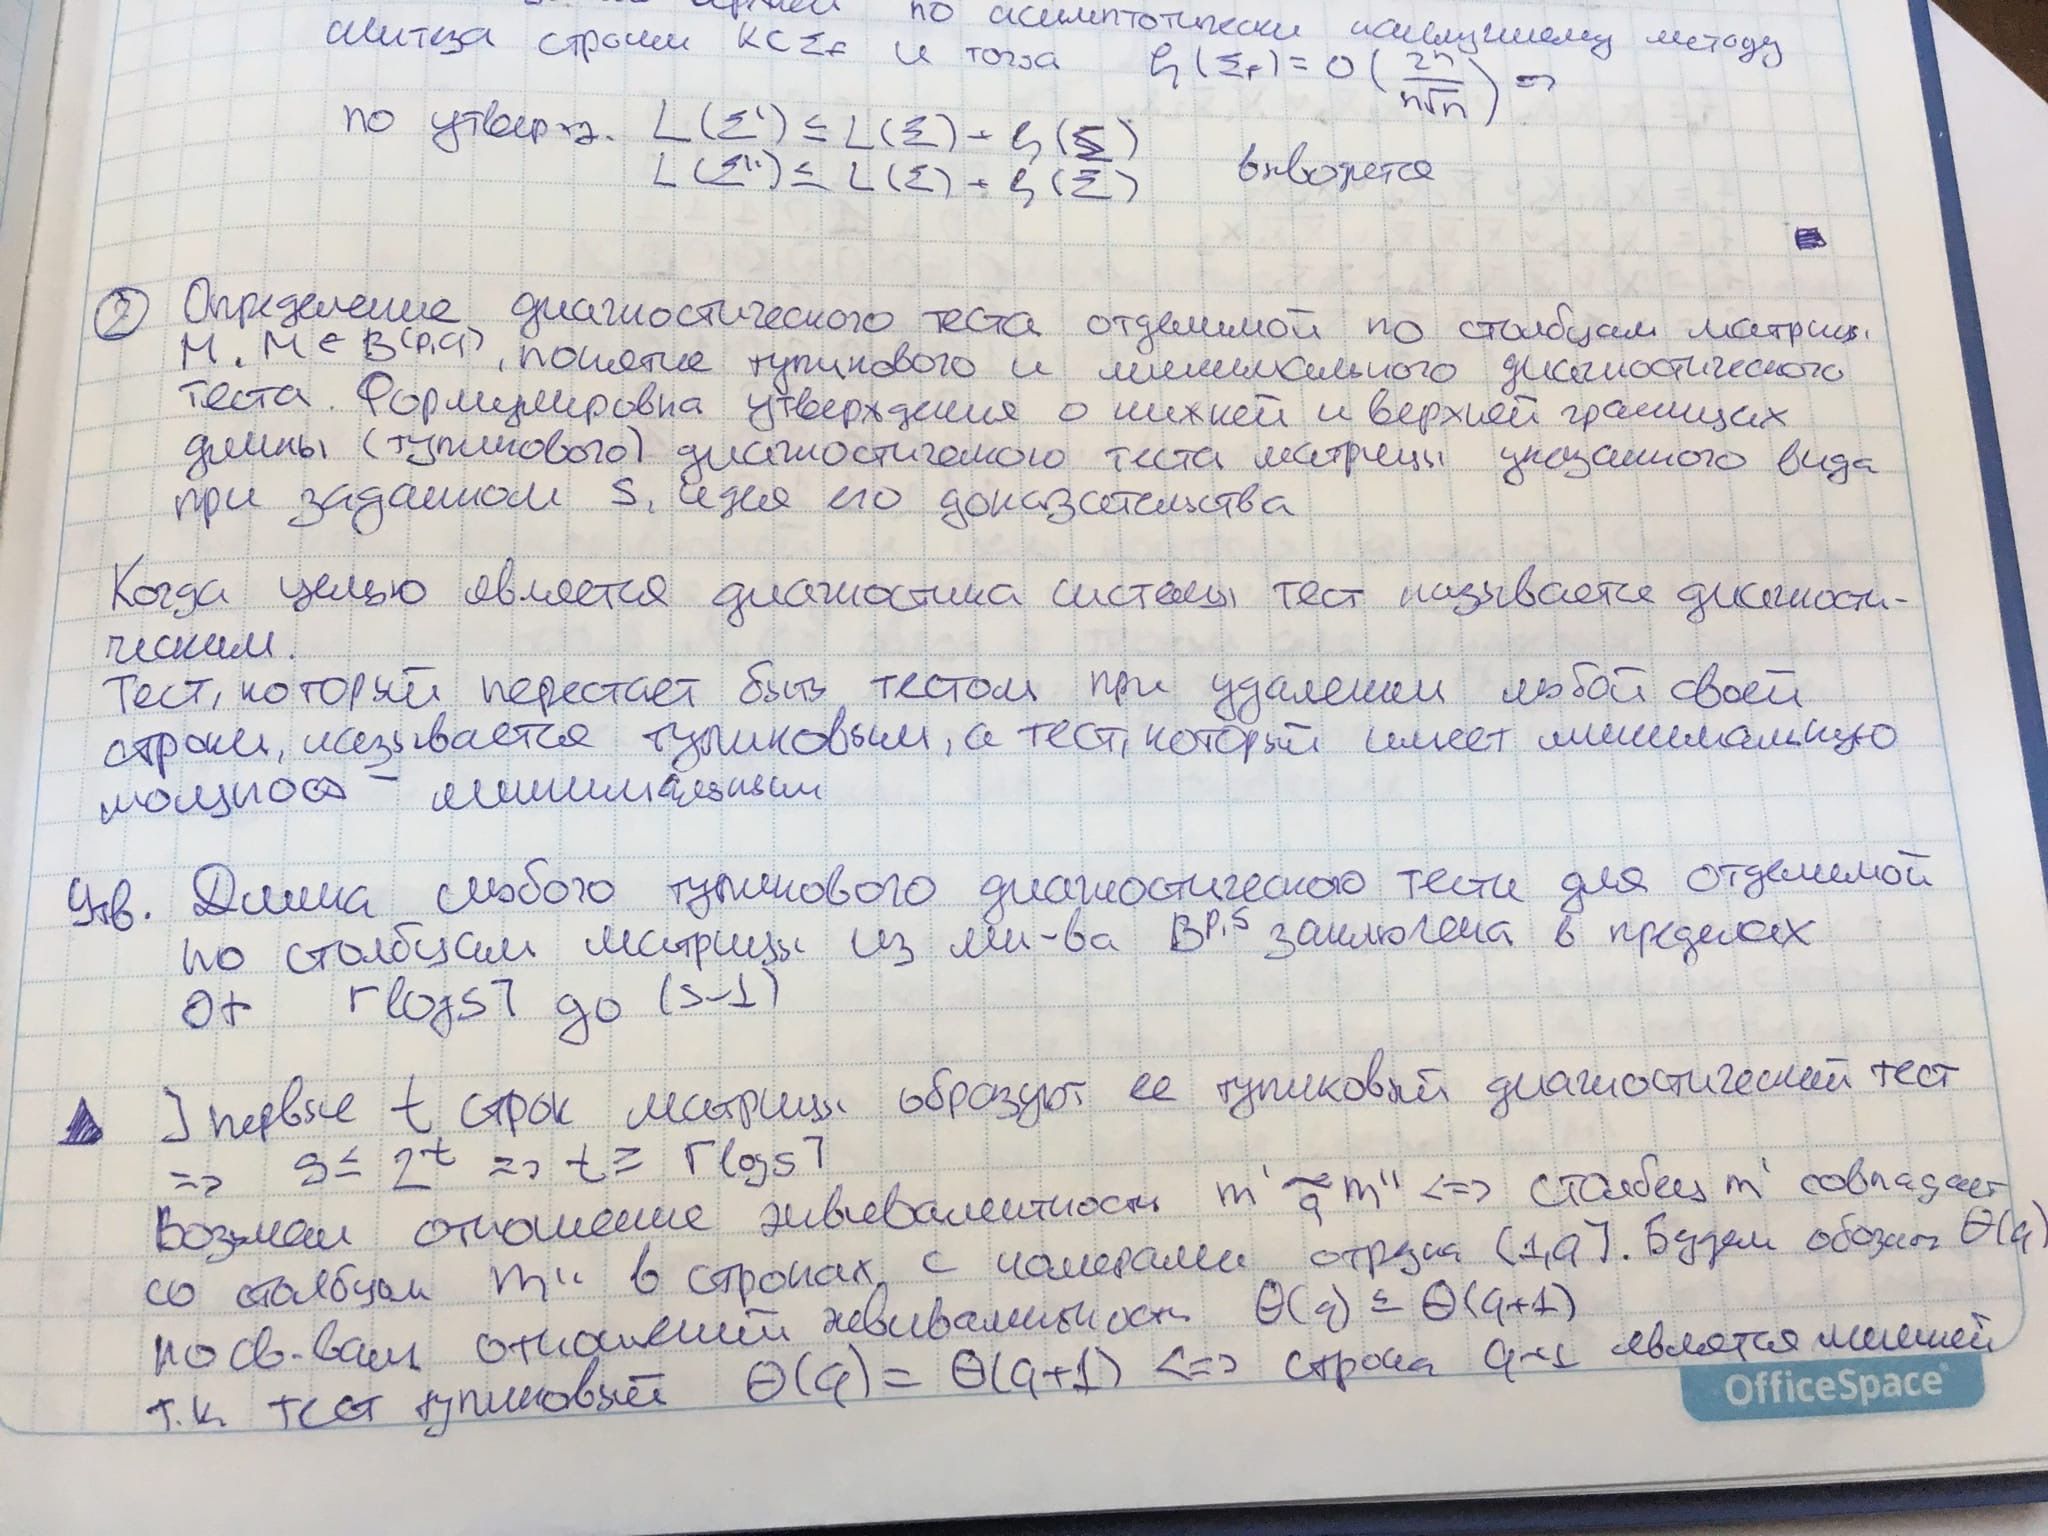 по асимптотически наилучшему методу
синтеза строим КС Σf и тогда ξ(Σf) = O(2n/n√n) =>
по утвержд. L(Σ') ≤ L(Σ) - ξ(Σ)
L(Σ'') ≤ L(Σ) - ξ(Σ)
② Определение диагностического теста отделимой по столбцам матрицы
M, M ∈ B(p,q), понятие тупикового и минимального диагностического
теста. Формулировка утверждения о нижней и верхней границах
длины (тупикового) диагностического теста матрицы указанного вида
при заданном s, идея его доказательства
Когда целью является диагностика системы тест называется диагности-
ческим.
Тест, который перестает быть тестом при удалении любой своей
строки, называется тупиковым, а тест, который имеет минимальную
мощность - минимальным
Утв. Длина любого тупикового диагностического теста для отделимой
по столбцам матрицы из мн-ва Bp,s заключена в пределах
от ⌈log s⌉ до (s-1)
▲ ] первые t строк матрицы образуют ее тупиковый диагностический тест
=> s ≤ 2^t => t ≥ ⌈log s⌉
Возьмем отношение эквивалентности m' ~q m'' <=> столбец m' совпадает
со столбцом m'' в строках с номерами отрезка (1,q]. Будем обознач θ(q)
по св-вам отношений эквивалентность θ(q) ≤ θ(q+1)
т.к. тест тупиковый θ(q) = θ(q+1) <=> строка q+1 является лишней
OfficeSpace